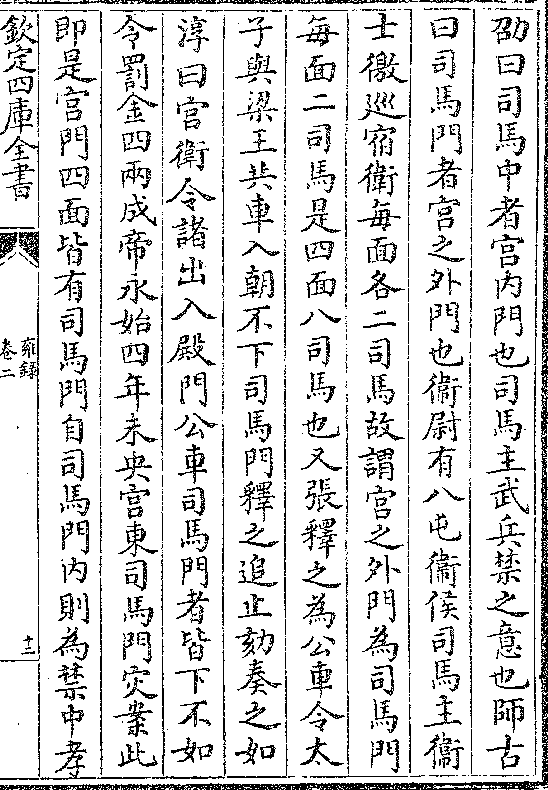 劭曰司馬中者宫内門也司馬主武兵禁之意也師古
曰司馬門者宫之外門也衞尉有八屯衞候司馬主衞
士徼巡宿衛每面各二司馬故謂宫之外門為司馬門
每面二司馬是四面八司馬也又張釋之為公車令太
子與梁王共車入朝不下司馬門釋之追止劾奏之如
淳曰宫衛令諸出入殿門公車司馬門者皆下不如
令罰金四兩成帝永始四年未央宫東司馬門灾案此
即是宫門四面皆有司馬門自司馬門内則為禁中孝
欽定四庫全書
雍録
卷二
十三